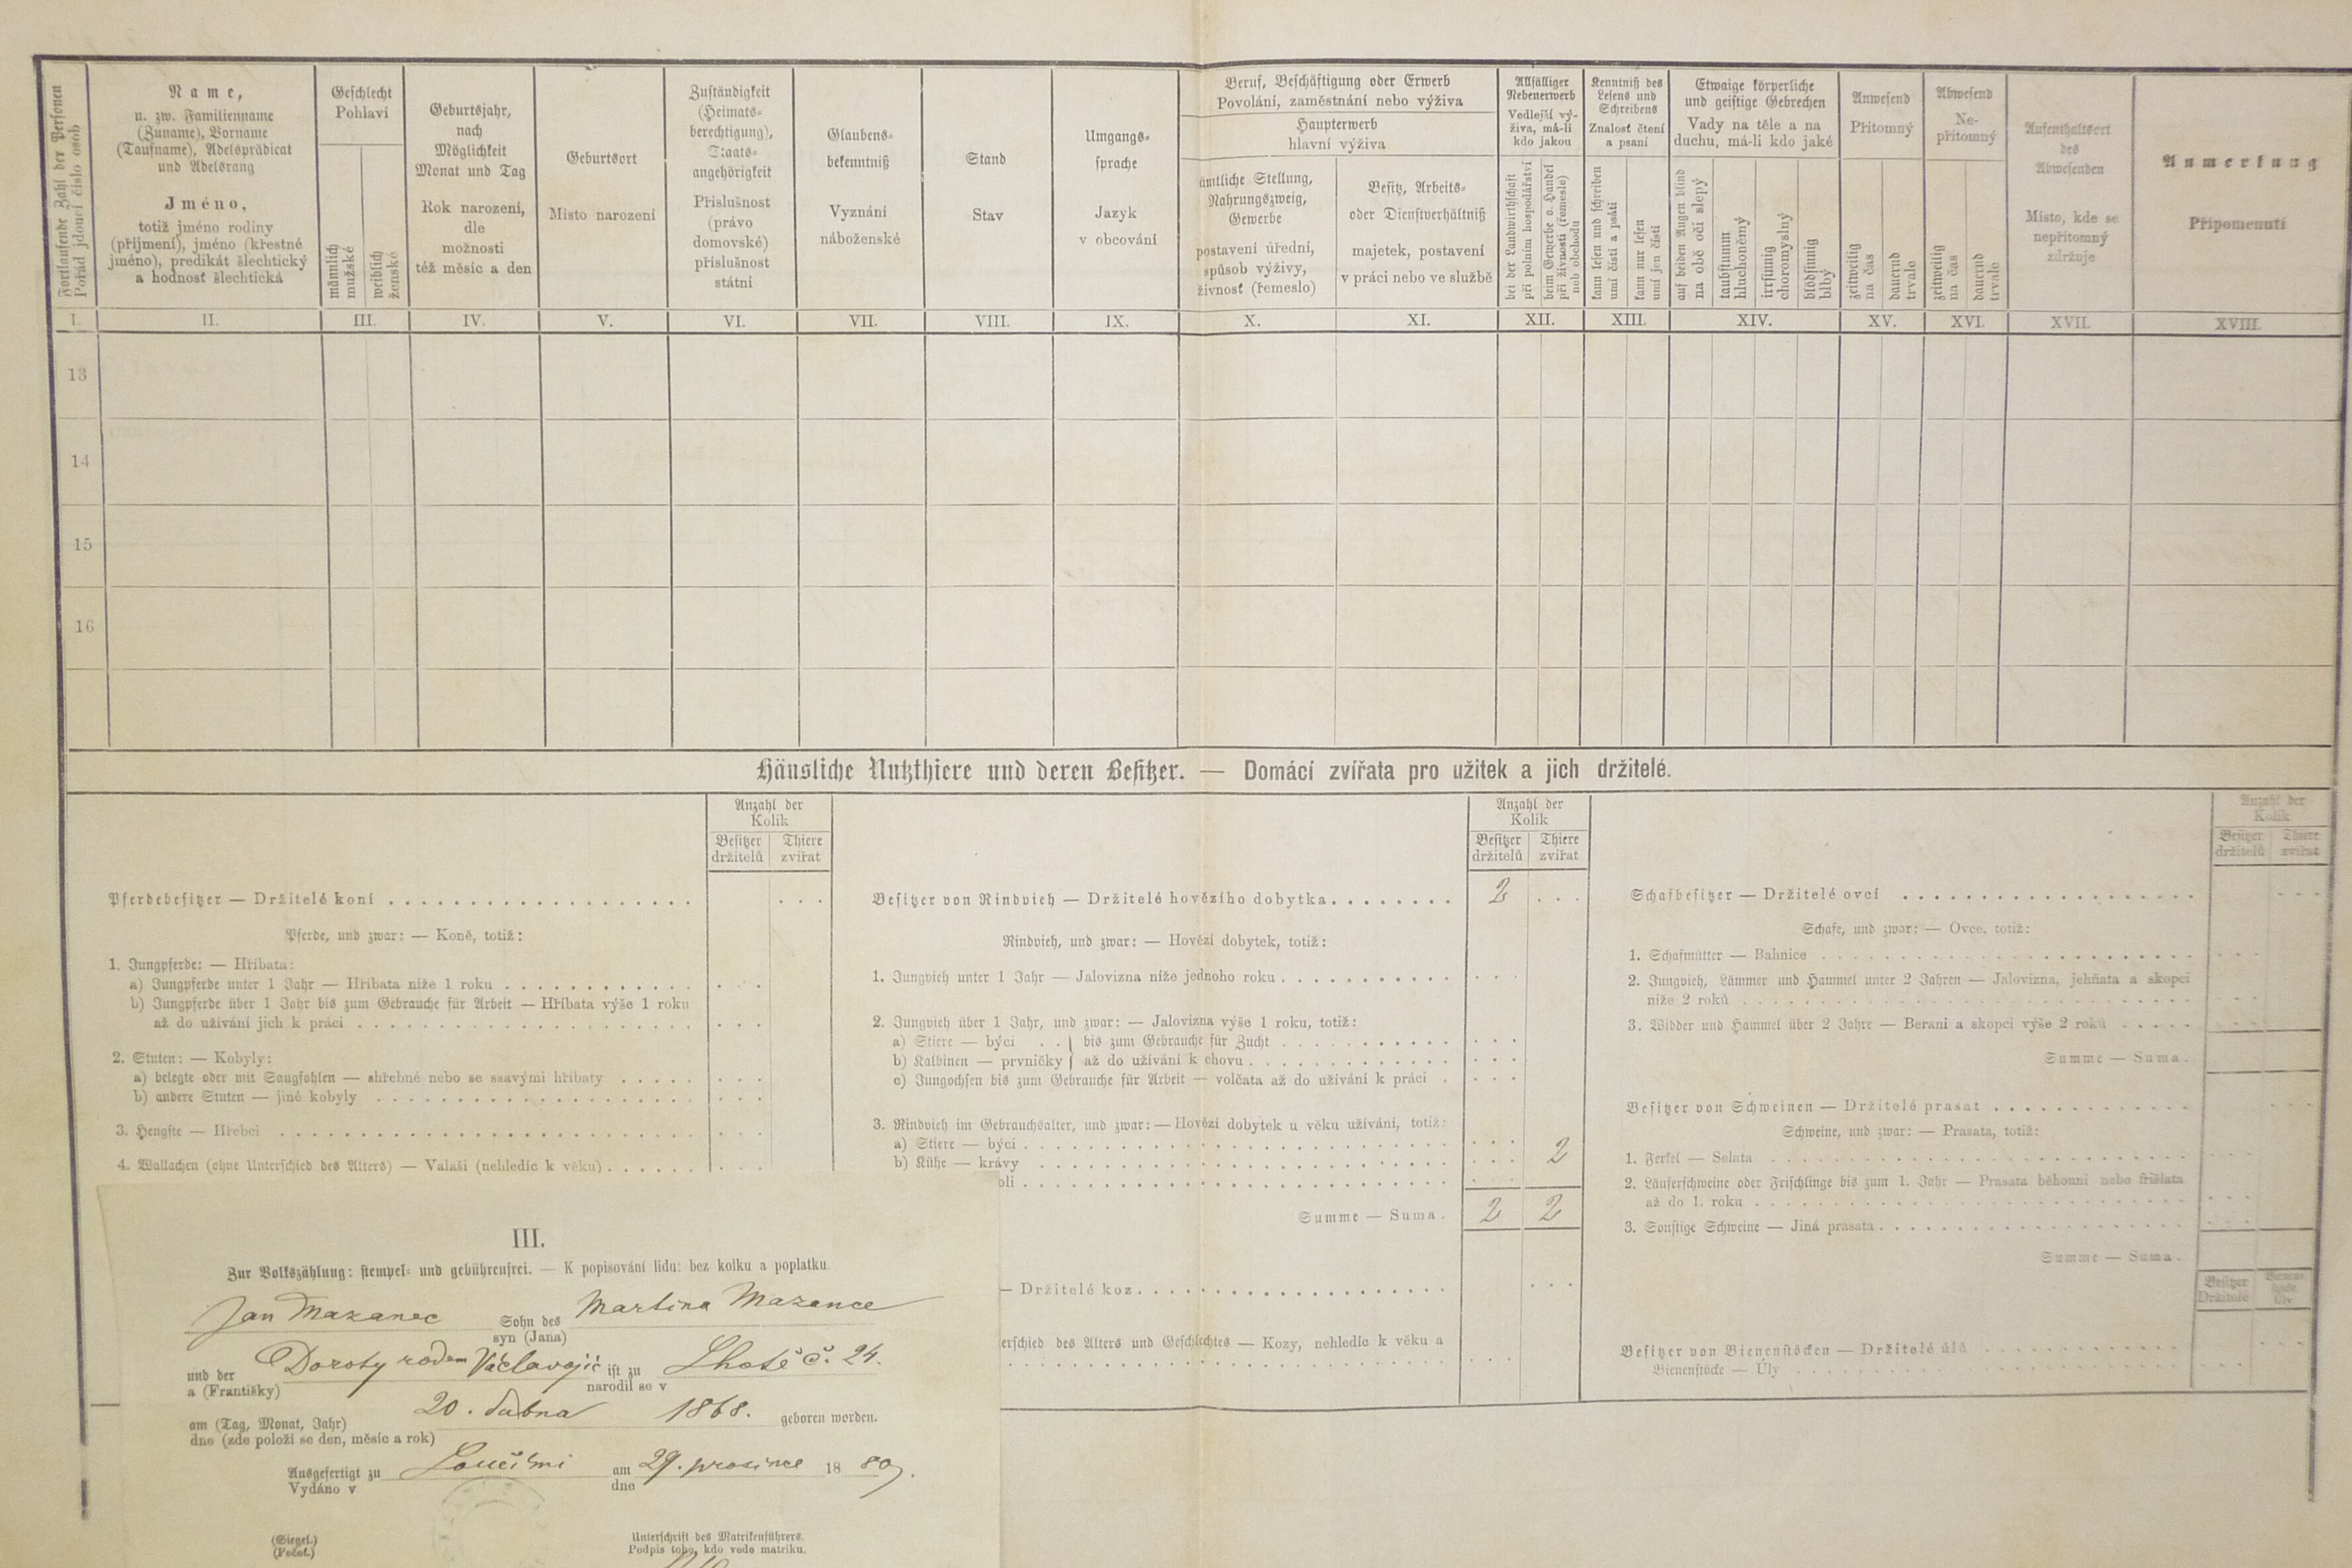 Fortlaufende Zahl der Personen
Pořád jdoucí číslo osob
Name,
u. zw. Familienname
(Zuname), Vorname
(Taufname), Adelsprädicat
und Adelsrang
Jméno,
totiž jméno rodiny
(příjmení), jméno (křestné
jméno), predikát šlechtický
a hodnosť šlechtická
Geschlecht
Pohlaví
männlich
mužské
weiblich
ženské
Geburtsjahr,
nach
Möglichkeit
Monat und Tag
Rok narození,
dle
možnosti
též měsíc a den
Geburtsort
Místo narození
Zuständigkeit
(Heimats-
berechtigung),
Staats-
angehörigkeit
Příslušnost
(právo
domovské)
příslušnost
státní
Glaubens-
bekenntniß
Vyznání
náboženské
Stand
Stav
Umgangs-
sprache
Jazyk
v obcování
Beruf, Beschäftigung oder Erwerb
Povolání, zaměstnání nebo výživa
Haupterwerb
hlavní výživa
ämtliche Stellung,
Nahrungszweig,
Gewerbe
postavení úřední,
spůsob výživy,
živnosť (řemeslo)
Besitz, Arbeits-
oder Dienstverhältniß
majetek, postavení
v práci nebo ve službě
Allfälliger
Nebenerwerb
Vedlejší vý-
živa, má-li
kdo jakou
bei der Landwirthschaft
při polním hospodářství
beim Gewerbe o. Handel
při živnosti (řemesle)
neb obchodu
Kenntniß des
Lesens und
Schreibens
Znalosť čtení
a psaní
kann lesen und schreiben
umí čísti a psáti
kann nur lesen
umí jen čísti
Etwaige körperliche
und geistige Gebrechen
Vady na těle a na
duchu, má-li kdo jaké
auf beiden Augen blind
na obě oči slepý
taubstumm
hluchoněmý
irrsinnig
choromyslný
blödsinnig
blbý
Anwesend
Přítomný
zeitweilig
na čas
dauernd
trvale
Abwesend
Ne-
přítomný
zeitweilig
na čas
dauernd
trvale
Aufenthaltsort
des
Abwesenden
Místo, kde se
nepřítomný
zdržuje
Anmerkung
Připomenutí
I. II. III. IV. V. VI. VII. VIII. IX. X. XI. XII. XIII. XIV. XV. XVI. XVII. XVIII.
13
14
15
16
Häusliche Nutzthiere und deren Besitzer. — Domácí zvířata pro užitek a jich držitelé.
Anzahl der
Kolik
Besitzer Thiere
držitelů zvířat
Pferdebesitzer — Držitelé koní
Pferde, und zwar: — Koně, totiž:
1. Jungpferde: — Hříbata:
a) Jungpferde unter 1 Jahr — Hříbata níže 1 roku
b) Jungpferde über 1 Jahr bis zum Gebrauche für Arbeit — Hříbata výše 1 roku
až do užívání jich k práci
2. Stuten: — Kobyly:
a) belegte oder mit Saugfohlen — shřebné nebo se ssavými hříbaty
b) andere Stuten — jiné kobyly
3. Hengste — Hřebci
4. Wallachen (ohne Unterschied des Alters) — Valaši (nehledíc k věku)
Anzahl der
Kolik
Besitzer Thiere
držitelů zvířat
Besitzer von Rindvieh — Držitelé hovězího dobytka 2
Rindvieh, und zwar: — Hovězí dobytek, totiž:
1. Jungvieh unter 1 Jahr — Jalovizna níže jednoho roku
2. Jungvieh über 1 Jahr, und zwar: — Jalovizna výše 1 roku, totiž:
a) Stiere — býci . . } bis zum Gebrauche für Zucht
b) Kalbinen — prvničky } až do užívání k chovu
c) Jungochsen bis zum Gebrauche für Arbeit — volčata až do užívání k práci
3. Rindvieh im Gebrauchsalter, und zwar: — Hovězí dobytek u věku užívání, totiž:
a) Stiere — býci
b) Kühe — krávy 2
oli
Summe — Suma. 2 2
— Držitelé koz
erschied des Alters und Geschlechtes — Kozy, nehledíc k věku a
Anzahl der
Kolik
Besitzer Thiere
držitelů zvířat
Schafbesitzer — Držitelé ovcí
Schafe, und zwar: — Ovce, totiž:
1. Schafmütter — Bahnice
2. Jungvieh, Lämmer und Hammel unter 2 Jahren — Jalovizna, jehňata a skopci
níže 2 roků
3. Widder und Hammel über 2 Jahre — Berani a skopci výše 2 roků
Summe — Suma.
Besitzer von Schweinen — Držitelé prasat
Schweine, und zwar: — Prasata, totiž:
1. Ferkel — Selata
2. Läuferschweine oder Frischlinge bis zum 1. Jahr — Prasata běhouni nebo frišlata
až do 1. roku
3. Sonstige Schweine — Jiná prasata
Summe — Suma.
Besitzer
Držitelé
Besitzer von Bienenstöcken — Držitelé úlů
Bienenstöcke — Úly
III.
Zur Volkszählung: stempel- und gebührenfrei. — K popisování lidu: bez kolku a poplatku.
Jan Mazanec Sohn des Martina Mazance
syn (Jana)
und der Doroty rodem Václavojíc ist zu Lhotě č. 24.
a (Františky) narodil se v
am (Tag, Monat, Jahr) 20. dubna 1868. geboren worden.
dne (zde položí se den, měsíc a rok)
Ausgefertigt zu Loučimi am 29. prosince 18 80.
Vydáno v dne
(Siegel.)
(Pečeť.)
Unterschrift des Matrikenführers.
Podpis toho, kdo vede matriku.